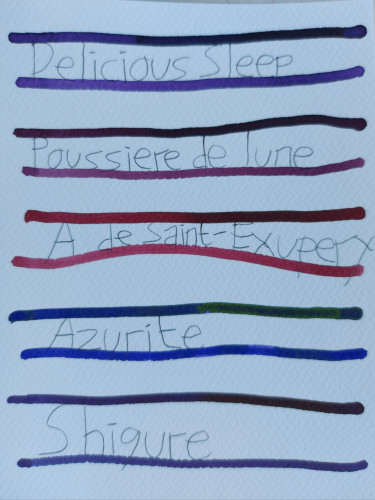 Delicious Sleep
Poussiere de lune
A de Saint-Exupery
Azurite
Shigure